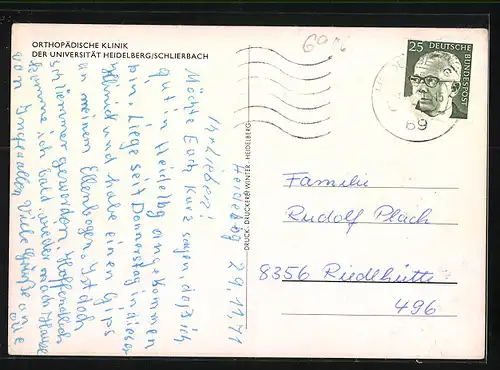 ORTHOPÄDISCHE KLINIK
DER UNIVERSITÄT HEIDELBERG/SCHLIERBACH
Heidelbg 29.11.71
Ihr Lieben!
Möchte Euch kurz sagen, daß ich
gut in Heidelbg angekommen
bin. Liege seit Donnerstag in dieser
Klinik und habe einen Gips
an meinem Ellenbogen. Ist doch
schlimmer geworden. Hoffentlich
komme ich bald wieder nach Hause
von Viele Grüße an
DRUCK: DRUCKEREI WINTER · HEIDELBERG
25 DEUTSCHE BUNDESPOST
69
Familie
Rudolf Plach
8356 Riedlhütte
496